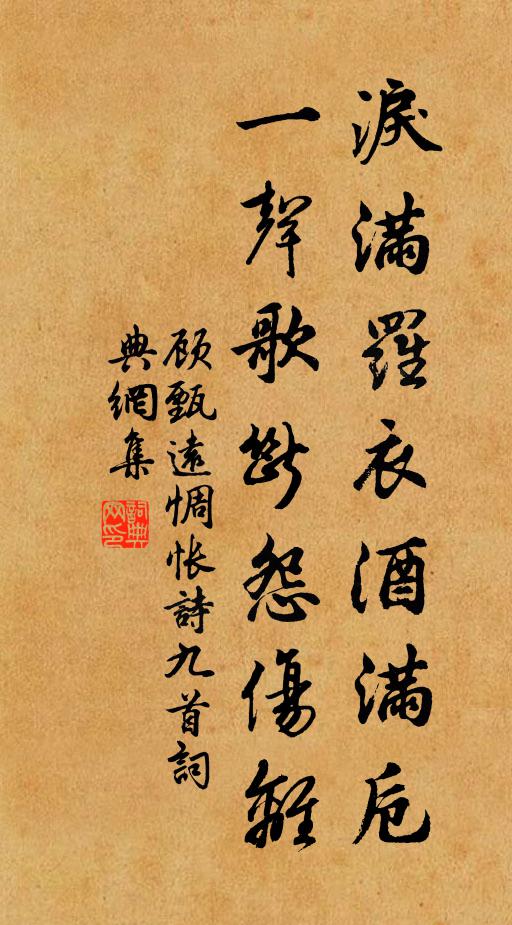 淚滿羅衣酒滿卮
一聲歌斷怨傷離
顧甄遠惆悵詩九首詞
典網集
詞典
网印